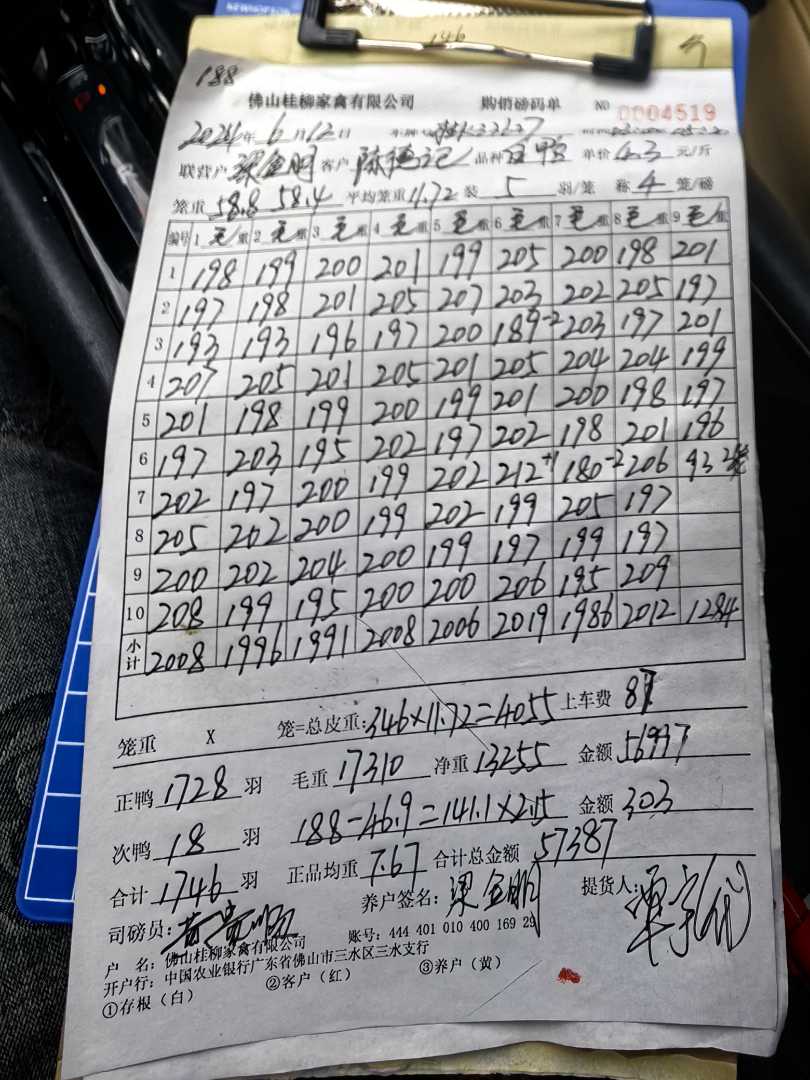 146
188
佛山桂柳家禽有限公司 购销磅码单 NO 0004519
2024年 6月12日
联营户 梁金朋 客户 陈德记 品种 鸭 单价 4.3 元/斤
笼重 58.8 58.4 平均笼重 11.72 装 5 羽/笼 称 4 笼/磅
编号 1 毛/重 2 毛/重 3 毛/重 4 毛/重 5 毛/重 6 毛/重 7 毛/重 8 毛/重 9 毛/重
1 198 199 200 201 199 205 200 198 201
2 197 198 201 205 207 203 202 205 197
3 193 193 196 197 200 189-2 203 197 201
4 207 205 201 205 201 205 204 204 199
5 201 198 199 200 199 201 200 198 197
6 197 203 195 202 197 202 198 201 196
7 202 197 200 199 202 212+1 180-2 206 93 2笼
8 205 202 200 199 202 199 205 197
9 200 202 204 200 199 197 199 197
10 208 199 195 200 200 206 195 209
小计 2008 1996 1991 2008 2006 2019 1986 2012 1284
笼重 X 笼=总皮重: 346×11.72=4055 上车费 87
正鸭 1728 羽 毛重 17310 净重 13255 金额 56997
次鸭 18 羽 188-46.9=141.1×2.15 金额 303
合计 1746 羽 正品均重 7.67 合计总金额 57387
司磅员: 养户签名: 梁金朋 提货人:
户 名: 佛山桂柳家禽有限公司 账号: 444 401 010 400 169 29
开户行: 中国农业银行广东省佛山市三水区三水支行
①存根（白） ②客户（红） ③养户（黄）